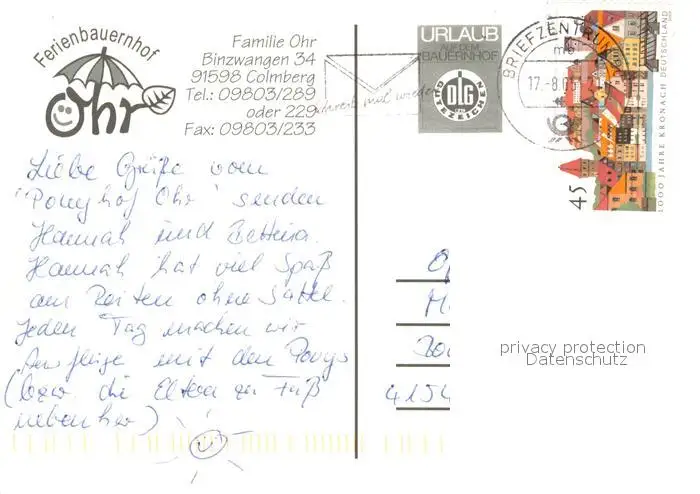 Ferienbauernhof
Ohr
Familie Ohr
Binzwangen 34
91598 Colmberg
Tel.: 09803/289
oder 229
Fax: 09803/233
Schreib mal wieder
URLAUB
AUF DEM
BAUERNHOF
DLG
GÜTEZEICHEN
BRIEFZENTRUM
17.-8.0
45
1000 JAHRE KRONACH DEUTSCHLAND
Liebe Grüße vom
"Ponyhof Ohr" senden
Hannah und Bettina.
Hannah hat viel Spaß
am Reiten ohne Sattel.
Jeden Tag machen wir
Ausflüge mit den Ponys
(bzw. die Eltern zu Fuß
nebenher)
4154
privacy protection
Datenschutz